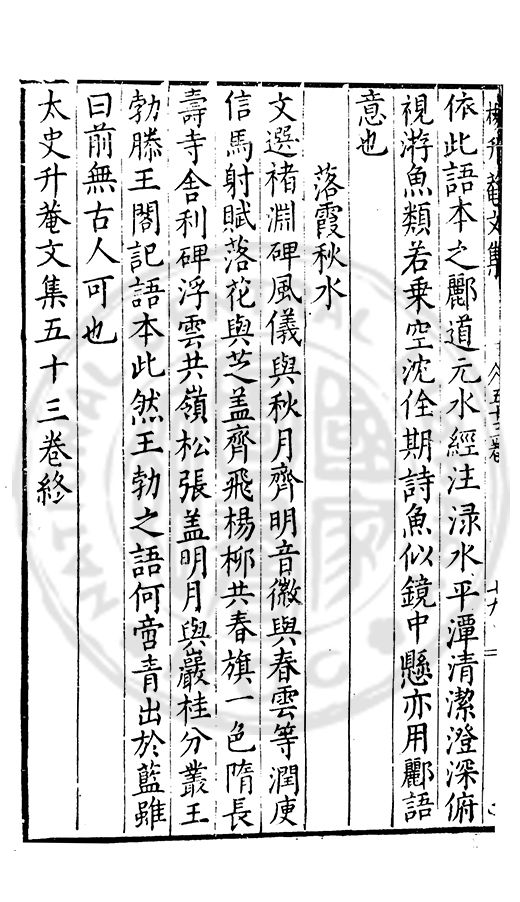 依此語本之酈道元水經注淥水平潭清潔澄深俯
視游魚類若乗空沈佺期詩魚似鏡中懸亦用酈語
意也
落霞秋水
文選褚淵碑風儀與秋月齊明音徽與春雲等潤庾
信馬射賦落花與芝盖齊飛楊栁共春旗一色隋長
壽寺舎利碑浮雲共嶺松張盖明月與巖桂分叢王
勃滕王閣記語本此然王勃之語何啻青出於藍雖
曰前無古人可也
太史升菴文集五十三卷終